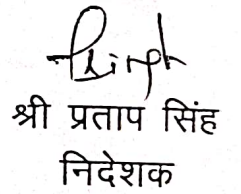 श्री प्रताप सिंह
निदेशक